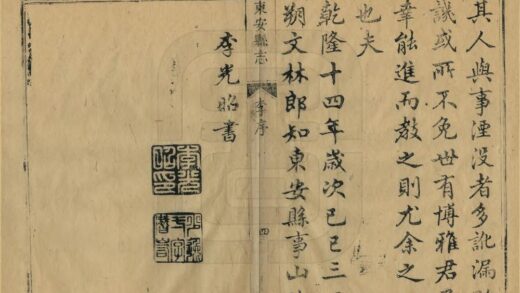 其人與事湮没者多訛漏
譏或所不免世有博雅君
幸能進而教之則尤余之
也夫
乾隆十四年歲次己巳三
朔文林郎知東安縣事山
東安縣志 李序 四
李光昭書
李光昭印